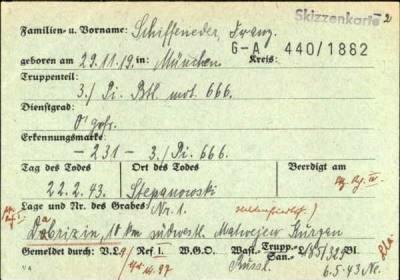 Skizzenkarte
2
Familien- u. Vorname: Schiffeneder, Franz.
G-A 440/1882
geboren am 29.11.19. in: München Kreis:
Truppenteil:
3./ Pi. Btl. mot. 666.
Dienstgrad:
O'gefr.
Erkennungsmarke:
- 231 - 3./ Pi. 666.
Tag des Todes Ort des Todes Beerdigt am
22.2.43. Stepanowski
Lage und Nr. des Grabes: Nr. 1.
Dabrizin, 10 km südwestl. Matwejew Kurgan
Gemeldet durch: V.L. Ref. 1. W.G.O. Wast. Trupp. San.
Russl. 6.5.43